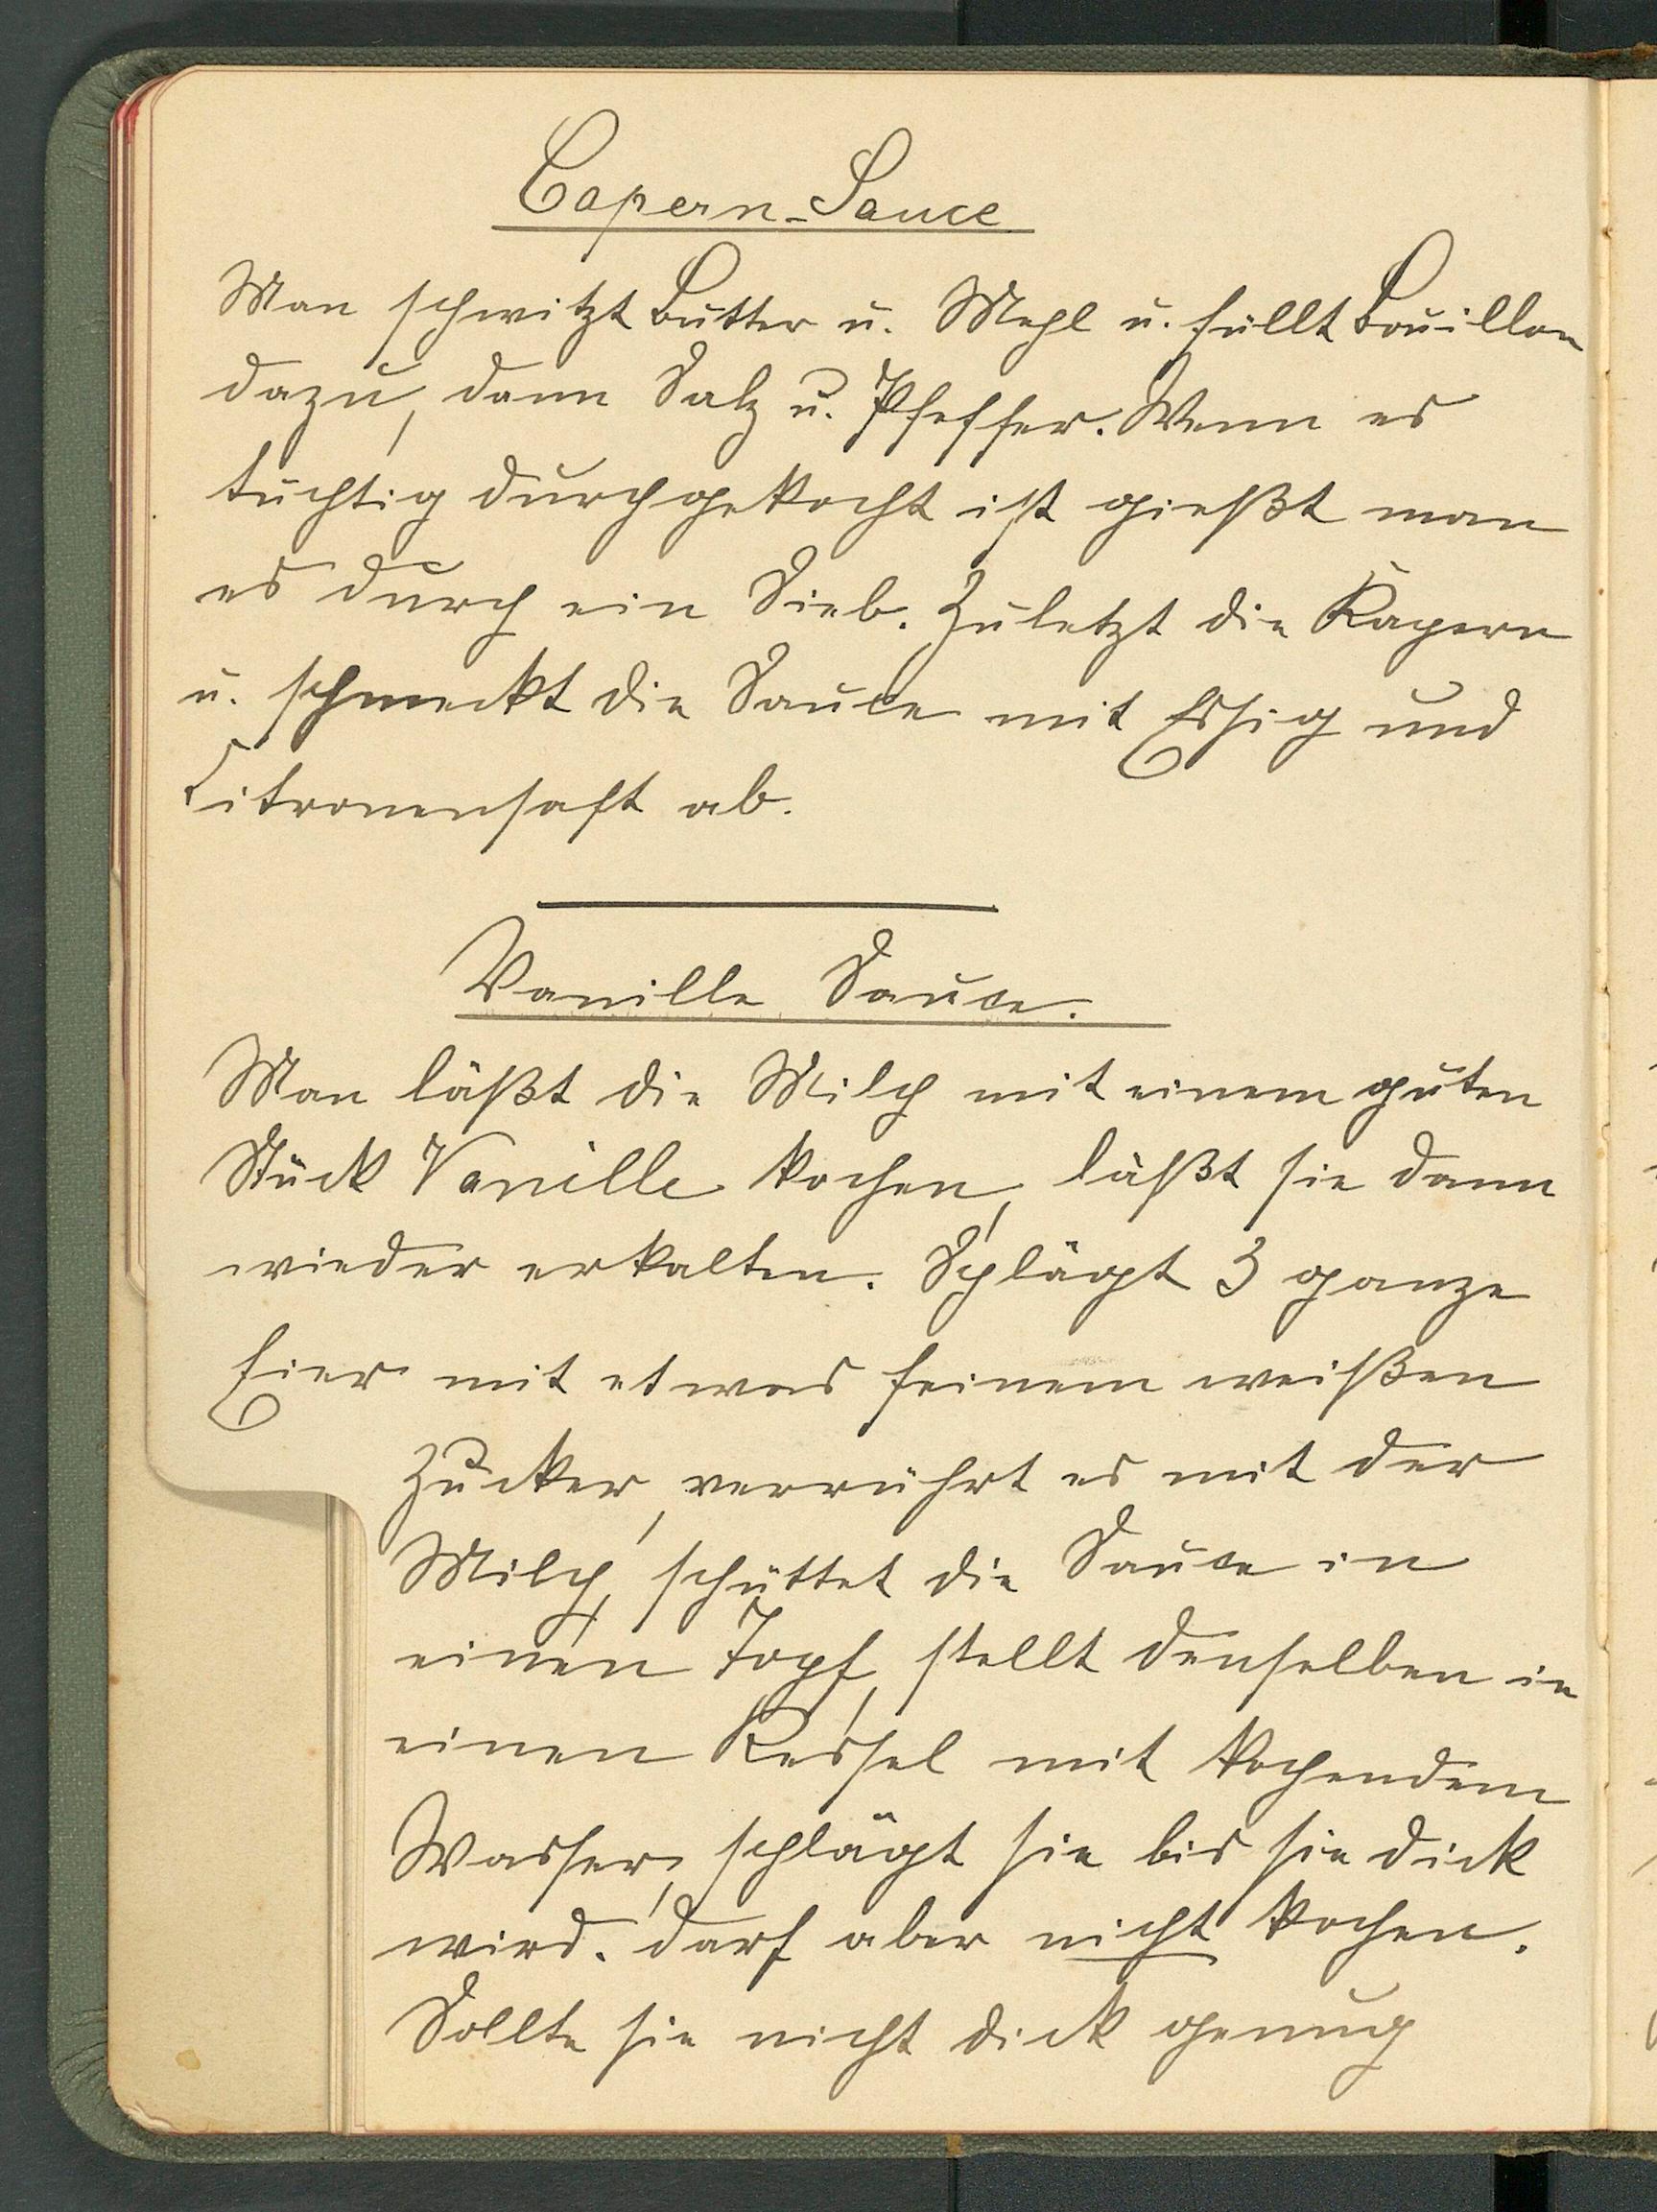 Capern-Sauce
Man schwitzt Butter u. Mehl u. füllt Bouillon
dazu, dann Salz u. Pfeffer. Wenn es
tüchtig durchgekocht ist gießt man
es durch ein Sieb. Zuletzt die Kapern
u. schmeckt die Sauce mit Essig und
Citronensaft ab.
Vanille Sauce.
Man läßt die Milch mit einem guten
Stück Vanille kochen, läßt sie dann
wieder erkalten. Schlägt 3 ganze
Eier mit etwas feinem weißen
Zucker, verrührt es mit der
Milch, schüttet die Sauce in
einen Topf, stellt denselben in
einen Kessel mit kochendem
Wasser, schlägt sie bis sie dick
wird. darf aber nicht kochen.
Sollte sie nicht dick genug